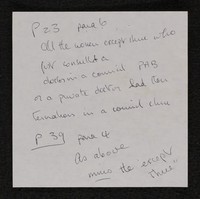 P 23 para 6
All the women except three who
first consulted a
doctor in a council
or a private doctor had their
termination in a council
P 39 para 4
As above
minus the except
three"